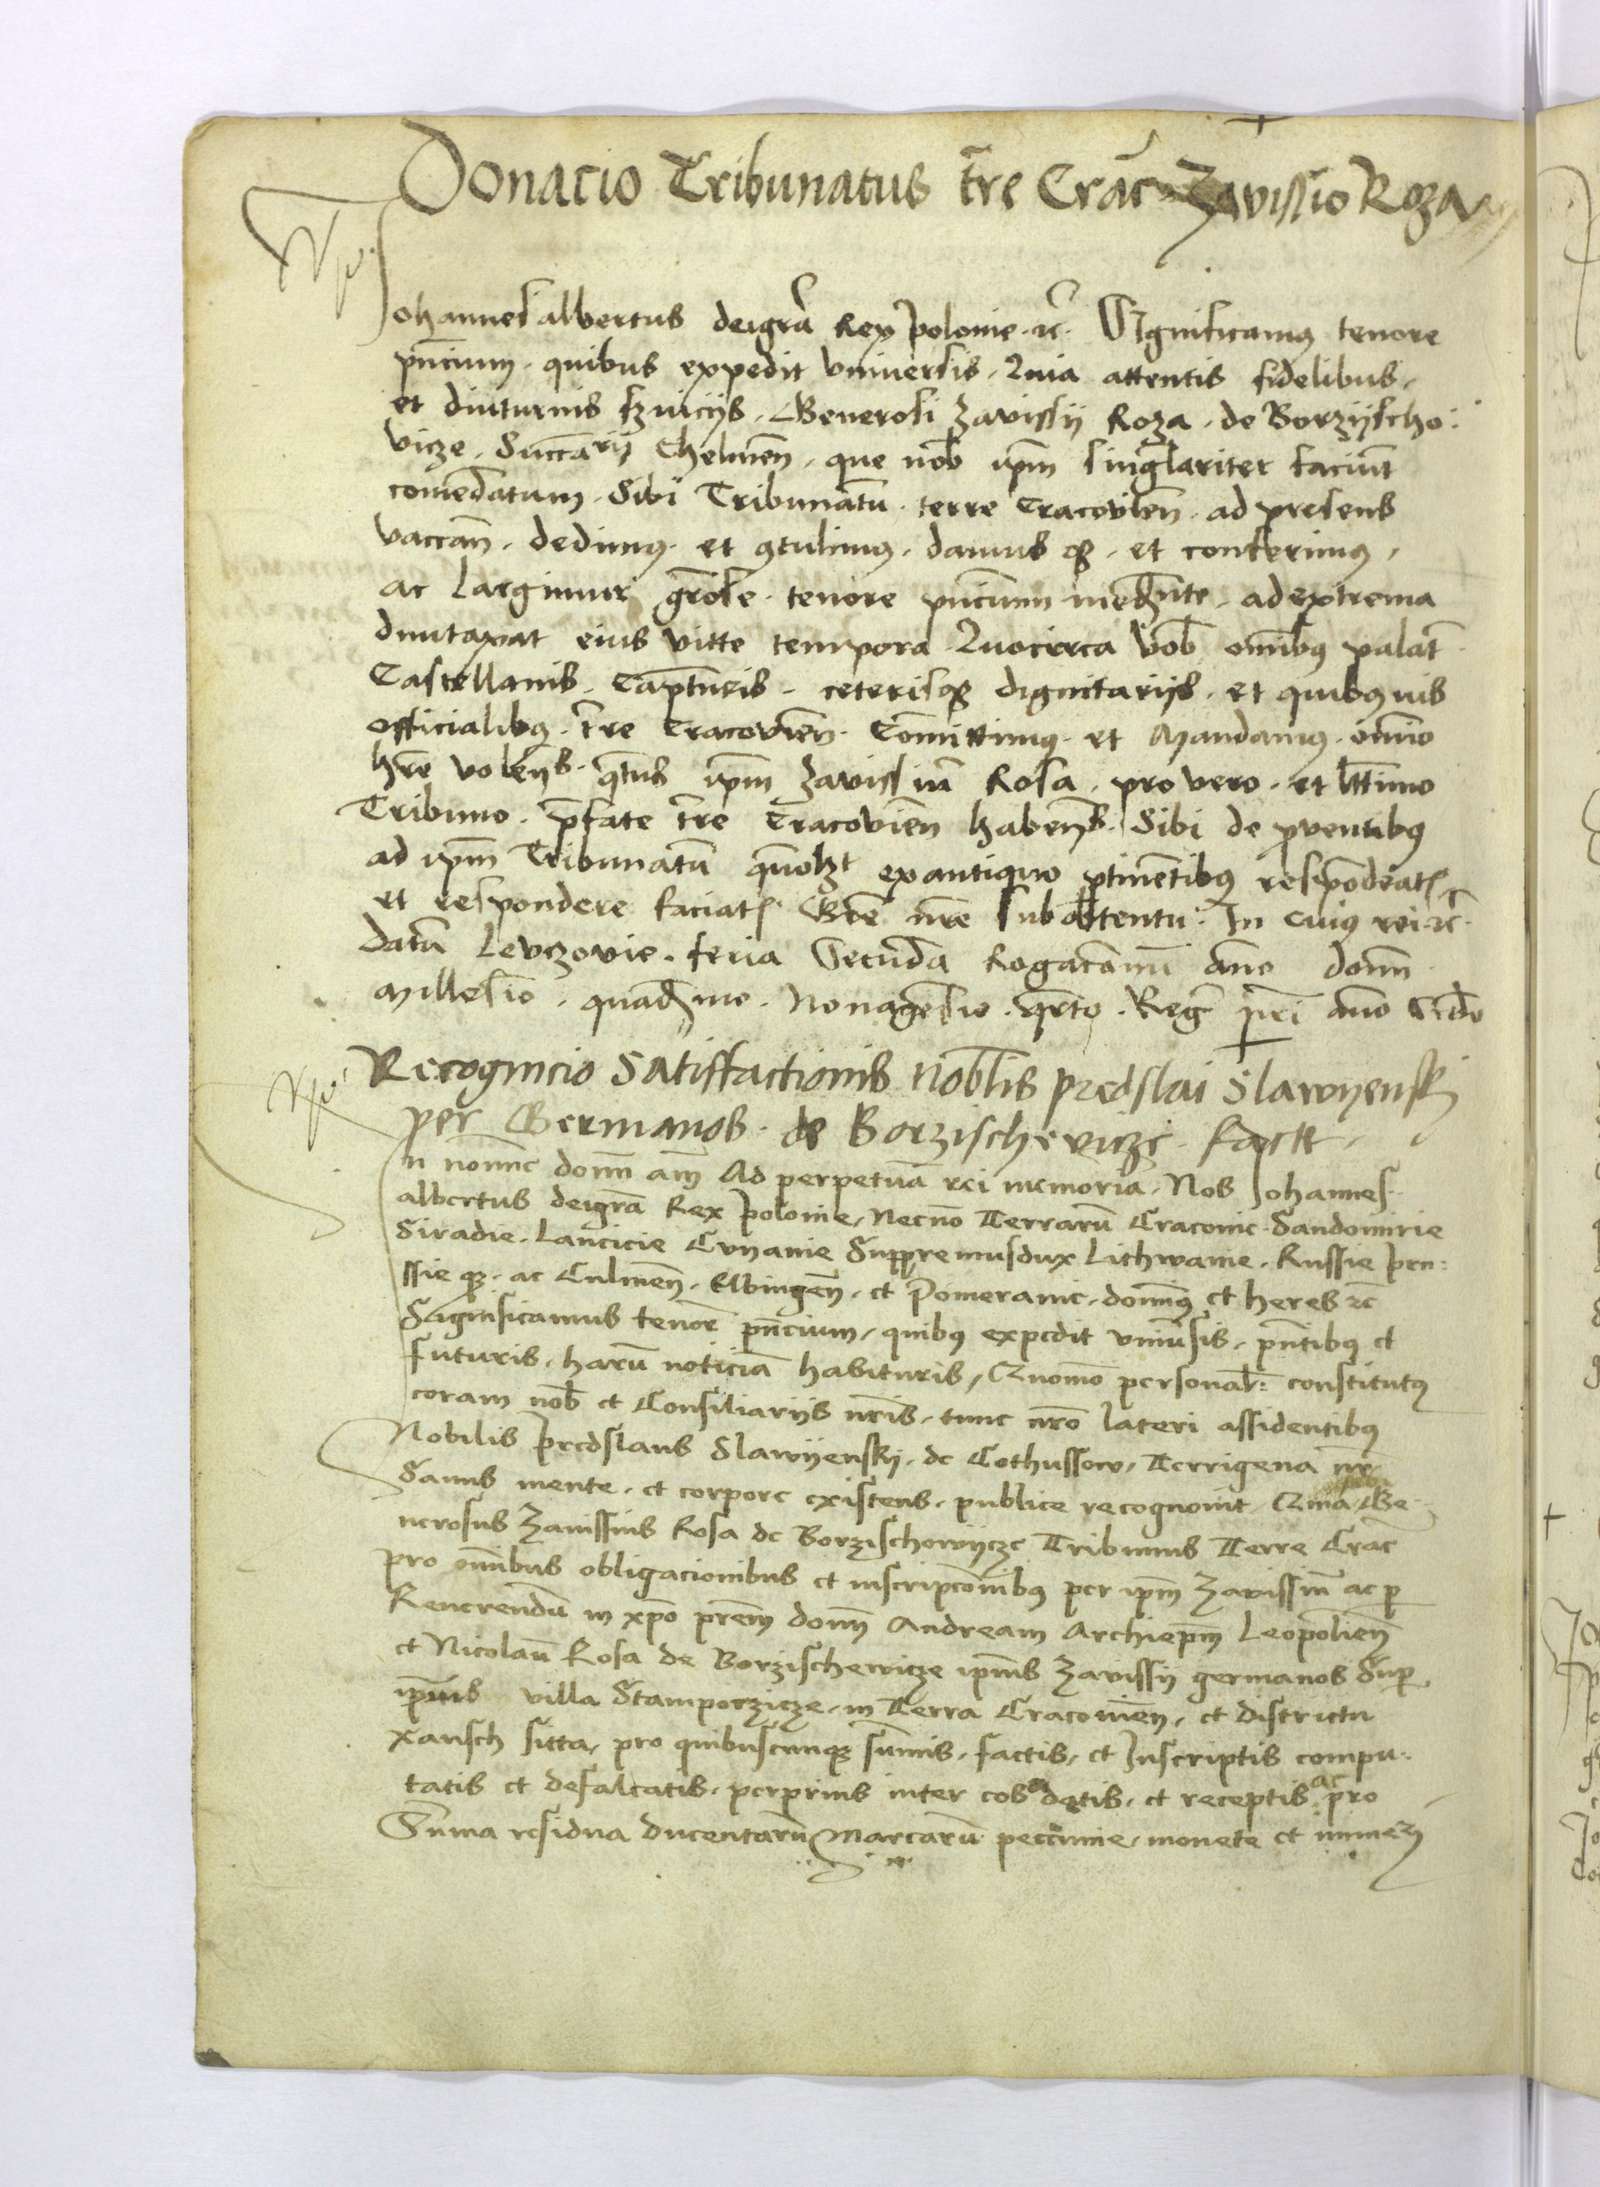 Donacio Tribunatus tre Crac Zavissio Roza
Johannes albertus deigra Rex polonie · rc · Significamus tenore
pncium · quibus expedit vniversis · Quia attentis fidelibus ·
et diuturnis szuicijs · Generosi Zavissij Roza · de Borzijscho:
vicze · Succarij Chelmen · que nob ipm singlariter faciunt
comedatum · Sibi Tribunatu · terre Cracovien · ad presens
vaccan · dedimus · et contulimus · damus qz · et conferimus ·
ac largimur grose · tenore pncium mediante · ad extrema
dumtaxat eius vitte tempora Quocirca vob omibus palat
Castellanis · Capturis · ceterisqz dignitarijs · et quibusuis
officialibus · tre Cracovien · Comittimus · et Mandamus · omio
hre volens · qtus ipm Zavissiu Rosa · pro vero · et lttimo
Tribuno · pfate tre Cracovien habens · Sibi de proventibus
ad ipm Tribunatu qmolzt ex antiquo ptinetibus respodeatis
et respondere faciatis Gre nre sub obtentu · In cuius rei · rc ·
datu Levczovie · feria Secuda Rogacionu Anno domi
Millesio · quadmo · Nonagesio · qrto · Regi nri Anno Scdo
Recognicio Satisfactionis nobilis predslai Slawyensky
per Germanos · de Borzischevicze · factt
In nomie domi am Ad perpetua rei memoria · Nos Johannes
albertus deigra Rex polonie · Necno Terraru Cracovie · Sandomirie
Siradie · Lancicie Cuyavie Suppremusdux Lithwanie · Russie pru:
ssie qz · ac Culmen · Elbingen · et Pomeranie · domius et heres rc
Significamus tenore pncium · quibus expedit vniusis · pntibus et
futuris · haru noticia habituris · Quomo personal: constitutus
coram nob et Consiliarijs nris · tunc nro lateri assidentibus
Nobilis predslaus Slawyensky · de Cothussow · Terrigena nr
Sanus mente · et corpore existens · publice recognouit · Quia Ge
nerosus Zavissius Rosa de Borzischowycze Tribunus Terre Crac
pro omibus obligacionibus et inscripcionibus per ipm Zavissiu ac p
Reuerendu in xpo prem domi Andream Archiepm Leopolien
et Nicolau Rosa de Borzischewicze ipius Zavissij germanos Sup
ipius villa Stamporzicze · in Terra Cracovien · et districtu
Xansch sitta · pro quibuscunqz sumis · factis · et Inscriptis compu:
tatis et defalcatis · perprius inter eos datis · et receptis ac pro
Suma residua ducentaru Marcaru peccunie · monete et numeri